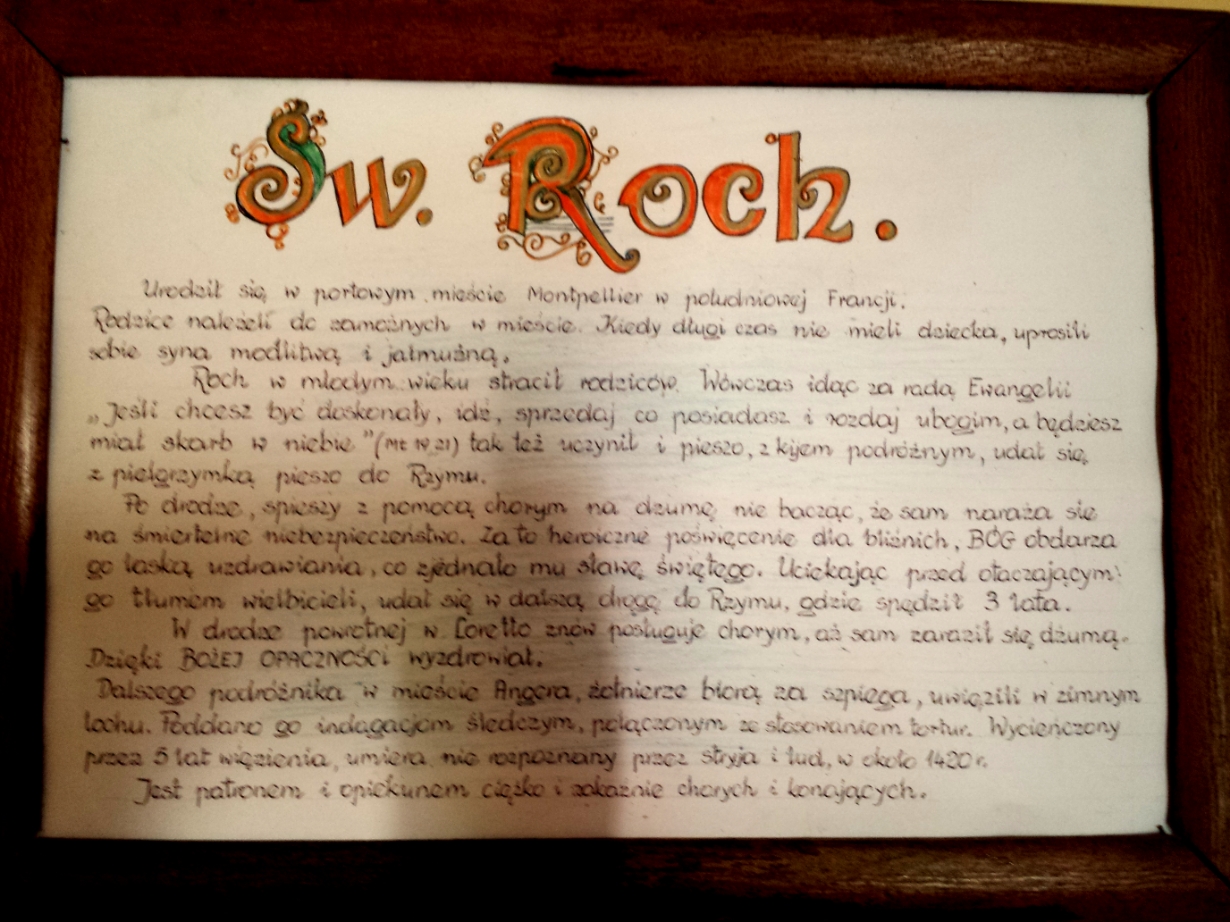 Św. Roch.
Urodził się w portowym mieście Montpellier w południowej Francji.
Rodzice należeli do zamożnych w mieście. Kiedy długi czas nie mieli dziecka, uprosili
sobie syna modlitwą i jałmużną.
Roch w młodym wieku stracił rodziców. Wówczas idąc za radą Ewangelii
„Jeśli chcesz być doskonały, idź, sprzedaj co posiadasz i rozdaj ubogim, a będziesz
miał skarb w niebie" (Mt 19 21) tak też uczynił i pieszo, z kijem podróżnym, udał się
z pielgrzymką pieszo do Rzymu.
Po drodze, spieszy z pomocą chorym na dżumę nie bacząc, że sam naraża się
na śmiertelne niebezpieczeństwo. Za to heroiczne poświęcenie dla bliźnich, BÓG obdarza
go łaską uzdrawiania, co zjednało mu sławę świętego. Uciekając przed otaczającym
go tłumem wielbicieli, udał się w dalszą drogę do Rzymu, gdzie spędził 3 lata.
W drodze powrotnej w Loretto znów posługuje chorym, aż sam zaraził się dżumą.
Dzięki BOŻEJ OPACZNOŚCI wyzdrowiał.
Dalszego podróżnika w mieście Angera, żołnierze biorą za szpiega, uwięzili w zimnym
lochu. Poddano go indagacjom śledczym, połączonym ze stosowaniem tortur. Wycieńczony
przez 5 lat więzienia, umiera nie rozpoznany przez stryja i lud, w około 1420 r.
Jest patronem i opiekunem ciężko i zakaźnie chorych i konających.